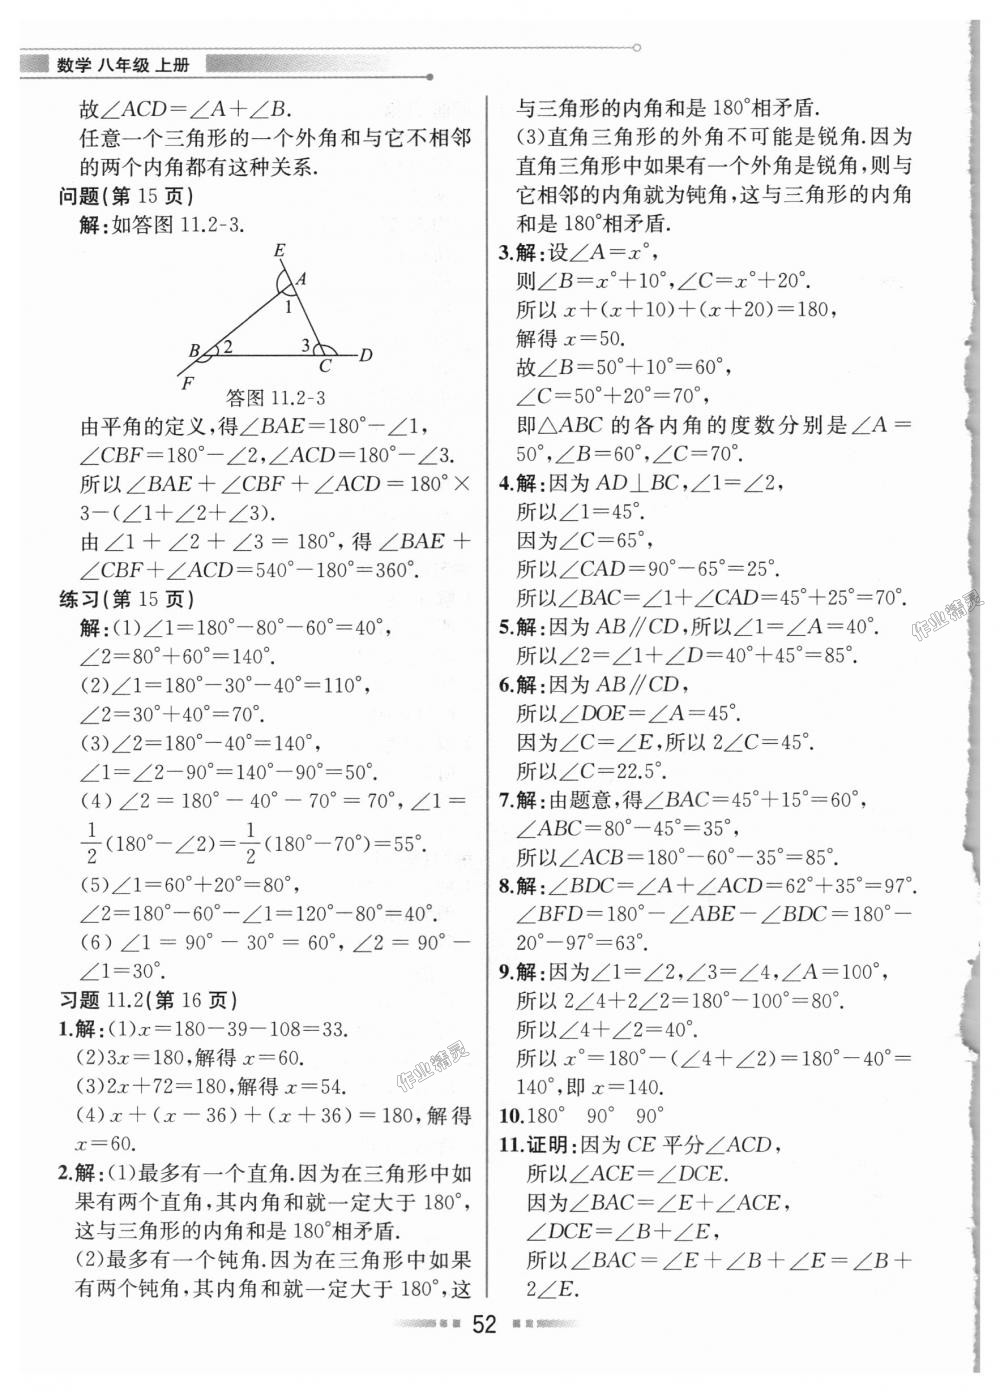 数学 八年级 上册
故∠ACD=∠A+∠B.
任意一个三角形的一个外角和与它不相邻
的两个内角都有这种关系.
问题(第 15 页)
解:如答图 11.2-3.
E
A
1
B 2 3 C D
F
答图 11.2-3
由平角的定义,得∠BAE=180°-∠1,
∠CBF=180°-∠2,∠ACD=180°-∠3.
所以∠BAE+∠CBF+∠ACD=180°×
3-(∠1+∠2+∠3).
由∠1+∠2+∠3=180°,得∠BAE+
∠CBF+∠ACD=540°-180°=360°.
练习(第 15 页)
解:(1)∠1=180°-80°-60°=40°,
∠2=80°+60°=140°.
(2)∠1=180°-30°-40°=110°,
∠2=30°+40°=70°.
(3)∠2=180°-40°=140°,
∠1=∠2-90°=140°-90°=50°.
(4)∠2=180°-40°-70°=70°,∠1=
1/2(180°-∠2)=1/2(180°-70°)=55°.
(5)∠1=60°+20°=80°,
∠2=180°-60°-∠1=120°-80°=40°.
(6)∠1=90°-30°=60°,∠2=90°-
∠1=30°.
习题 11.2(第 16 页)
1.解:(1)x=180-39-108=33.
(2)3x=180,解得 x=60.
(3)2x+72=180,解得 x=54.
(4)x+(x-36)+(x+36)=180,解得
x=60.
2.解:(1)最多有一个直角.因为在三角形中如
果有两个直角,其内角和就一定大于 180°,
这与三角形的内角和是 180°相矛盾.
(2)最多有一个钝角.因为在三角形中如果
有两个钝角,其内角和就一定大于 180°,这
与三角形的内角和是 180°相矛盾.
(3)直角三角形的外角不可能是锐角.因为
直角三角形中如果有一个外角是锐角,则与
它相邻的内角就为钝角,这与三角形的内角
和是 180°相矛盾.
3.解:设∠A=x°,
则∠B=x°+10°,∠C=x°+20°.
所以 x+(x+10)+(x+20)=180,
解得 x=50.
故∠B=50°+10°=60°,
∠C=50°+20°=70°,
即△ABC 的各内角的度数分别是∠A=
50°,∠B=60°,∠C=70°.
4.解:因为 AD⊥BC,∠1=∠2,
所以∠1=45°.
因为∠C=65°,
所以∠CAD=90°-65°=25°.
所以∠BAC=∠1+∠CAD=45°+25°=70°.
5.解:因为 AB∥CD,所以∠1=∠A=40°.
所以∠2=∠1+∠D=40°+45°=85°.
6.解:因为 AB∥CD,
所以∠DOE=∠A=45°.
因为∠C=∠E,所以 2∠C=45°.
所以∠C=22.5°.
7.解:由题意,得∠BAC=45°+15°=60°,
∠ABC=80°-45°=35°,
所以∠ACB=180°-60°-35°=85°.
8.解:∠BDC=∠A+∠ACD=62°+35°=97°.
∠BFD=180°-∠ABE-∠BDC=180°-
20°-97°=63°.
9.解:因为∠1=∠2,∠3=∠4,∠A=100°,
所以 2∠4+2∠2=180°-100°=80°.
所以∠4+∠2=40°.
所以 x°=180°-(∠4+∠2)=180°-40°=
140°,即 x=140.
10.180° 90° 90°
11.证明:因为 CE 平分∠ACD,
所以∠ACE=∠DCE.
因为∠BAC=∠E+∠ACE,
∠DCE=∠B+∠E,
所以∠BAC=∠E+∠B+∠E=∠B+
2∠E.
作业精灵
作业精灵
52